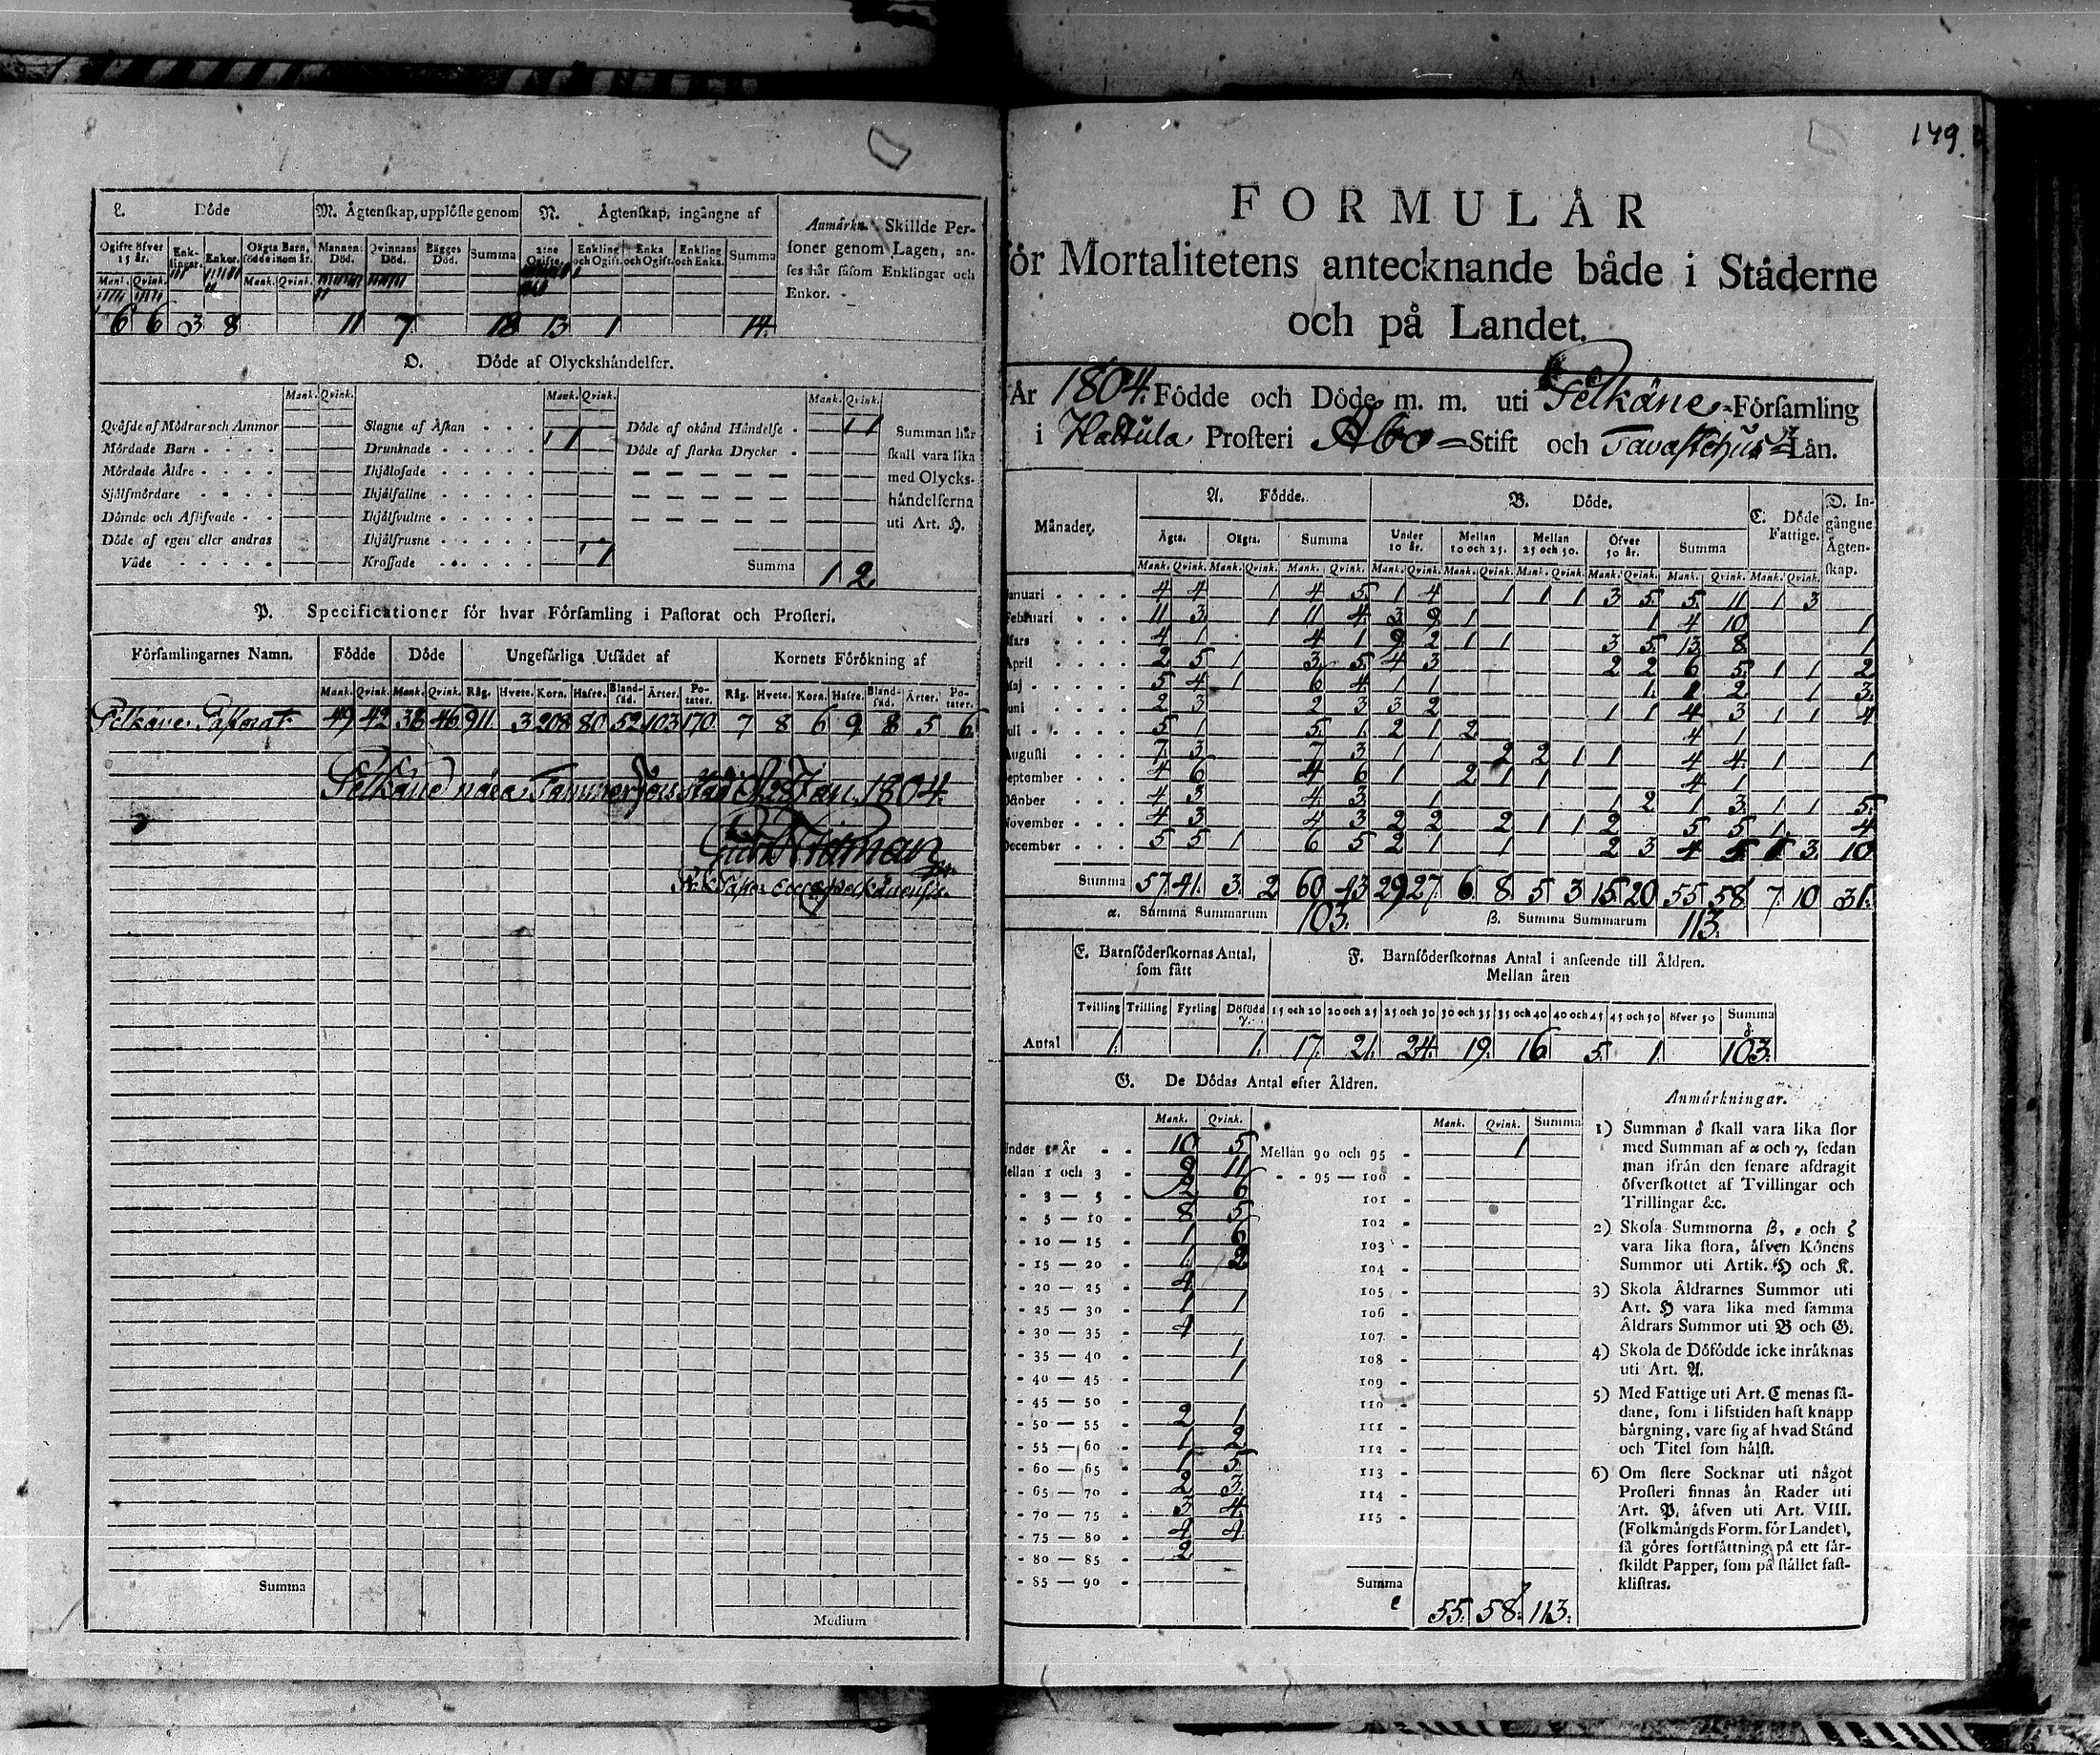 L. Döde
M. Ägtenskap, upplöste genom
N. Ägtenskap, ingångne af
Anmärkn. Skillde Personer genom Lagen, anses här såsom Enklingar och Enkor.
Ogifte öfver 15 år. Enklingar. Enkor. Oägta Barn, födde inom år. Mannens Död. Qvinnans Död. Bägges Död. Summa 2:ne Ogifte. Enkling och Ogift. Enka och Ogift. Enkling och Enka. Summa
Mank. Qvink. Mank. Qvink.
6 6 3 8 11 7 18 13 1 14.
O. Döde af Olyckshändelser.
Mank. Qvink. Mank. Qvink. Mank. Qvink.
Qväfde af Mödrar och Ammor
Mördade Barn
Mördade Äldre
Självmördare
Dömde och Aflifvade
Döde af egen eller andras
Våde
Slagne af Åskan
Drunknade 1
Ihjälosade
Ihjälfallne
Ihjälsvultne
Ihjälfrusne
Krossade 1
Döde af okänd Händelse 1
Döde af starka Drycker
Summa 1 2.
Summan här
skall vara lika
med Olycks-
händelserna
uti Art. H.
P. Specificationer för hvar Församling i Pastorat och Prosteri.
Församlingarnes Namn. Födde Döde Ungefärliga Utsädet af Kornets Förökning af
Mank. Qvink. Mank. Qvink. Råg. Hvete. Korn. Hafre. Blandsäd. Ärter. Potater. Råg. Hvete. Korn. Hafre. Blandsäd. Ärter. Potater.
Pelkäne Pastorat 49 42 38 46 911. 3 208 80 52 103 170. 7 8 6 9 8 5 6.
Pelkäne nära Tammerfors stad d. 28 Jan. 1804.
Summa
Medium
149.
FORMULÄR
för Mortalitetens antecknande både i Städerne
och på Landet.
År 1804. Födde och Döde m. m. uti Pelkäne Församling
i Hattula Prosteri Åbo Stift och Tavastehus Län.
Månader. A. Födde. B. Döde. C. Döde Fattige. D. Ingångne Ägtenskap.
Ägta. Oägta. Summa Under 10 år. Mellan 10 och 25. Mellan 25 och 50. Öfver 50 år. Summa
Mank. Qvink. Mank. Qvink. Mank. Qvink. Mank. Qvink. Mank. Qvink. Mank. Qvink. Mank. Qvink. Mank. Qvink. Mank. Qvink.
Januari 4 4 1 4 5. 1 4 1 1 1 3 5. 5. 11 1 3
Februari 11 3. 1 11 4. 3. 9 1 1 4 10 1
Mars 4 1 4 1 9 2 1 1 3 5. 13. 8 1
April 2 5 1 3. 5. 4 3 2 2 6 5. 1 1 2
Maj 5 4 1 6 4. 1 1 1. 2 1 3.
Juni 2 3 2 3 3 2 1 1 4 3 1 1 4
Juli 5 1 5. 1. 2 1 2 4 1
Augusti 7 3 7 3 1 1 2 2 1 1 4 4. 1 1
September 4 6 4 6 1 2 1 1 4 1
October 4 3 4. 3. 1 1 2 1 3. 1 1 5.
November 4 3 4 3 2 2 2 1 1 2 5 5 1 4
December 5 5 1 6 5 2 1 1 2 3 4 3. 10
Summa 57 41. 3. 2 60 43 29 27. 6 8 5 3 15 20 55 58 7 10 31.
α. Summa Summarum 103. β. Summa Summarum 113.
E. Barnföderskornas Antal, som fått
F. Barnföderskornas Antal i anseende till Åldren.
Mellan åren
Tvilling Trilling Fyrling Dödfödd γ. 15 och 20 20 och 25 25 och 30 30 och 35 35 och 40 40 och 45 45 och 50 öfver 50 Summa δ
Antal 1. 1. 17. 21. 24. 19. 16 5. 1. 103.
G. De Dödas Antal efter Åldren.
Mank. Qvink. Mank. Qvink. Summa
Under 1 År 10 5
Mellan 1 och 3 9 11
3 — 5 2 6
5 — 10 8 5
10 — 15 1 6
15 — 20 1. 2
20 — 25 4.
25 — 30 1 1
30 — 35 4
35 — 40 1
40 — 45 1
45 — 50
50 — 55 2 1
55 — 60 1 2
60 — 65 1 5
65 — 70 2 3.
70 — 75 3 4.
75 — 80 4 4
80 — 85 2
85 — 90
Mellan 90 och 95 1
95 — 100
101
102
103
104
105
106
107
108
109
110
111
112
113
114
115
Summa ε 55. 58. 113.
Anmärkningar.
1) Summan δ skall vara lika stor
med Summan af α och γ, sedan
man ifrån den senare afdragit
öfverskottet af Tvillingar och
Trillingar &c.
2) Skola Summorna β, ε och ζ
vara lika stora, äfven Könens
Summor uti Artik. H och K.
3) Skola Äldrarnes Summor uti
Art. H vara lika med samma
Äldrars Summor uti B och G.
4) Skola de Döfödde icke inräknas
uti Art. A.
5) Med Fattige uti Art. C menas så-
dane, som i lifstiden haft knapp
bärgning, vare sig af hvad Stånd
och Titel som hälst.
6) Om flere Socknar uti något
Prosteri finnas än Rader uti
Art. P. äfven uti Art. VIII.
(Folkmängds Form. för Landet),
så göres fortsättning på ett sär-
skildt Papper, som på stället fast-
klistras.